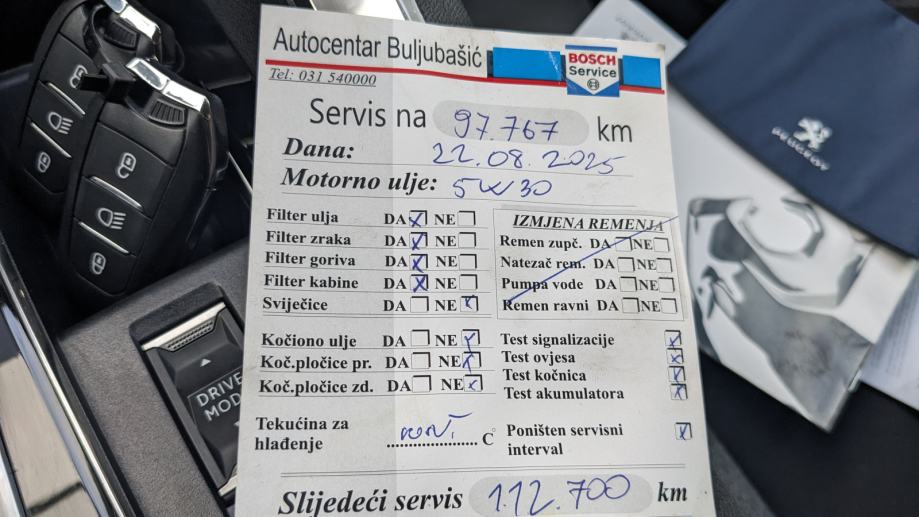 Autocentar Buljubašić
BOSCH
Service
Tel: 031 540000
Servis na 97.767 km
Dana: 22.08.2025
Motorno ulje: 5W30
Filter ulja DA NE
Filter zraka DA NE
Filter goriva DA NE
Filter kabine DA NE
Sviječice DA NE
IZMJENA REMENJA
Remen zupč. DA NE
Natezač rem. DA NE
Pumpa vode DA NE
Remen ravni DA NE
Kočiono ulje DA NE
Koč.pločice pr. DA NE
Koč.pločice zd. DA NE
Test signalizacije
Test ovjesa
Test kočnica
Test akumulatora
Tekućina za
hlađenje C°
Poništen servisni
interval
Slijedeći servis 112.700 km
DRIVE
MODE
PEUGEOT